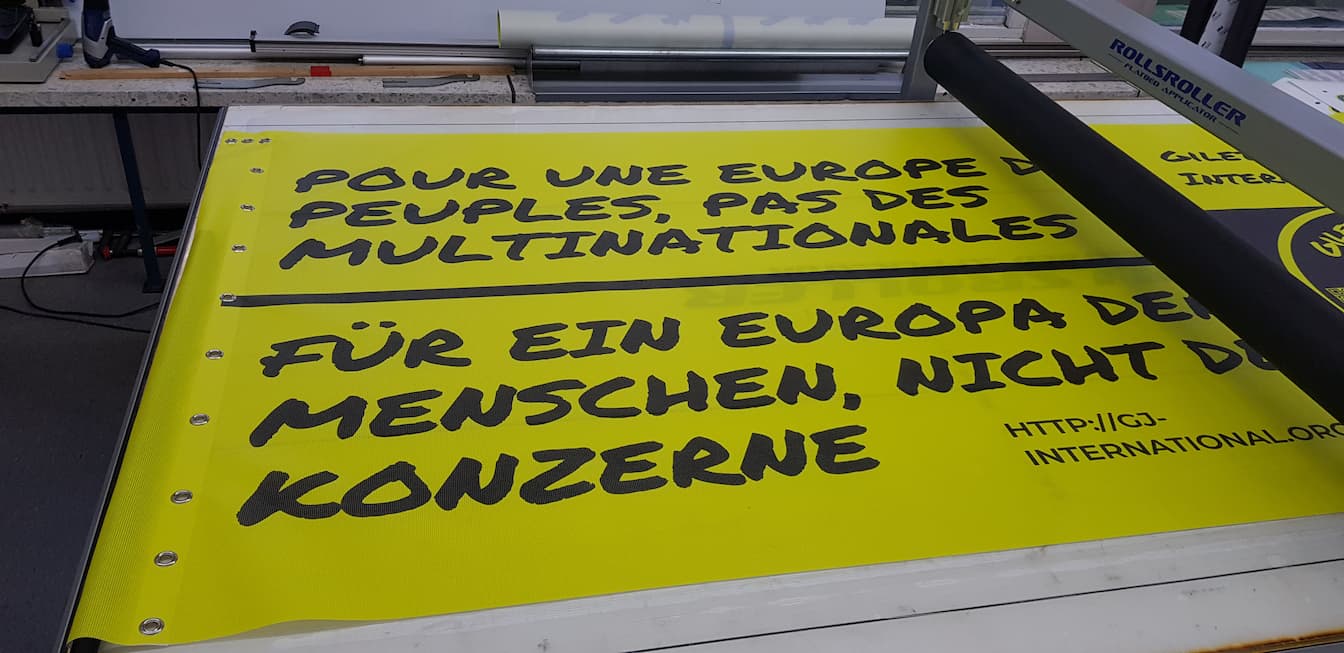 ROLLSROLLER
FLATBED APPLICATOR
POUR UNE EUROPE
PEUPLES, PAS DES
MULTINATIONALES
FÜR EIN EUROPA DER
MENSCHEN, NICHT
KONZERNE
HTTP://GJ-
INTERNATIONAL.ORG